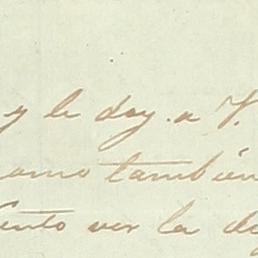 y le doy a V.
como también
ver la